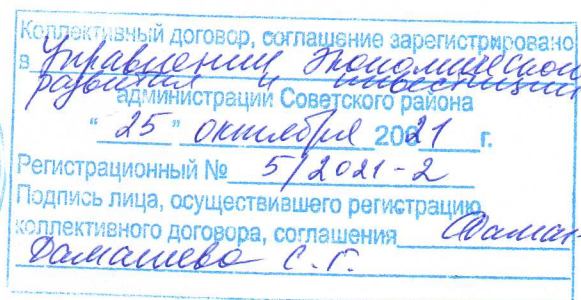 Коллективный договор, соглашение зарегистрировано
в Управлении экономического
развития и инвестиций
администрации Советского района
"25" октября 2021 г.
Регистрационный № 5/2021-2
Подпись лица, осуществившего регистрацию
коллективного договора, соглашения
С. Г.